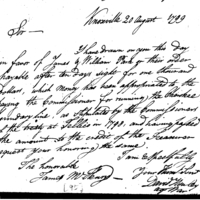 Knoxville 20 August 1799
Sir
I have drawn on you this day
in favor of James & William Park or their Order
payable after ten days sight for one thousand
dollars, which money has been appropriated to the
paying the Commissioner for running the Cherokee
boundary line, as stipulated by the Commissioners
of the treaty at Tellico in 1798, and having passed
the amount to the credit of the Treasurer
request your honoring the same.
I am respectfully
Your
The honorable
James McHenry
David Henley